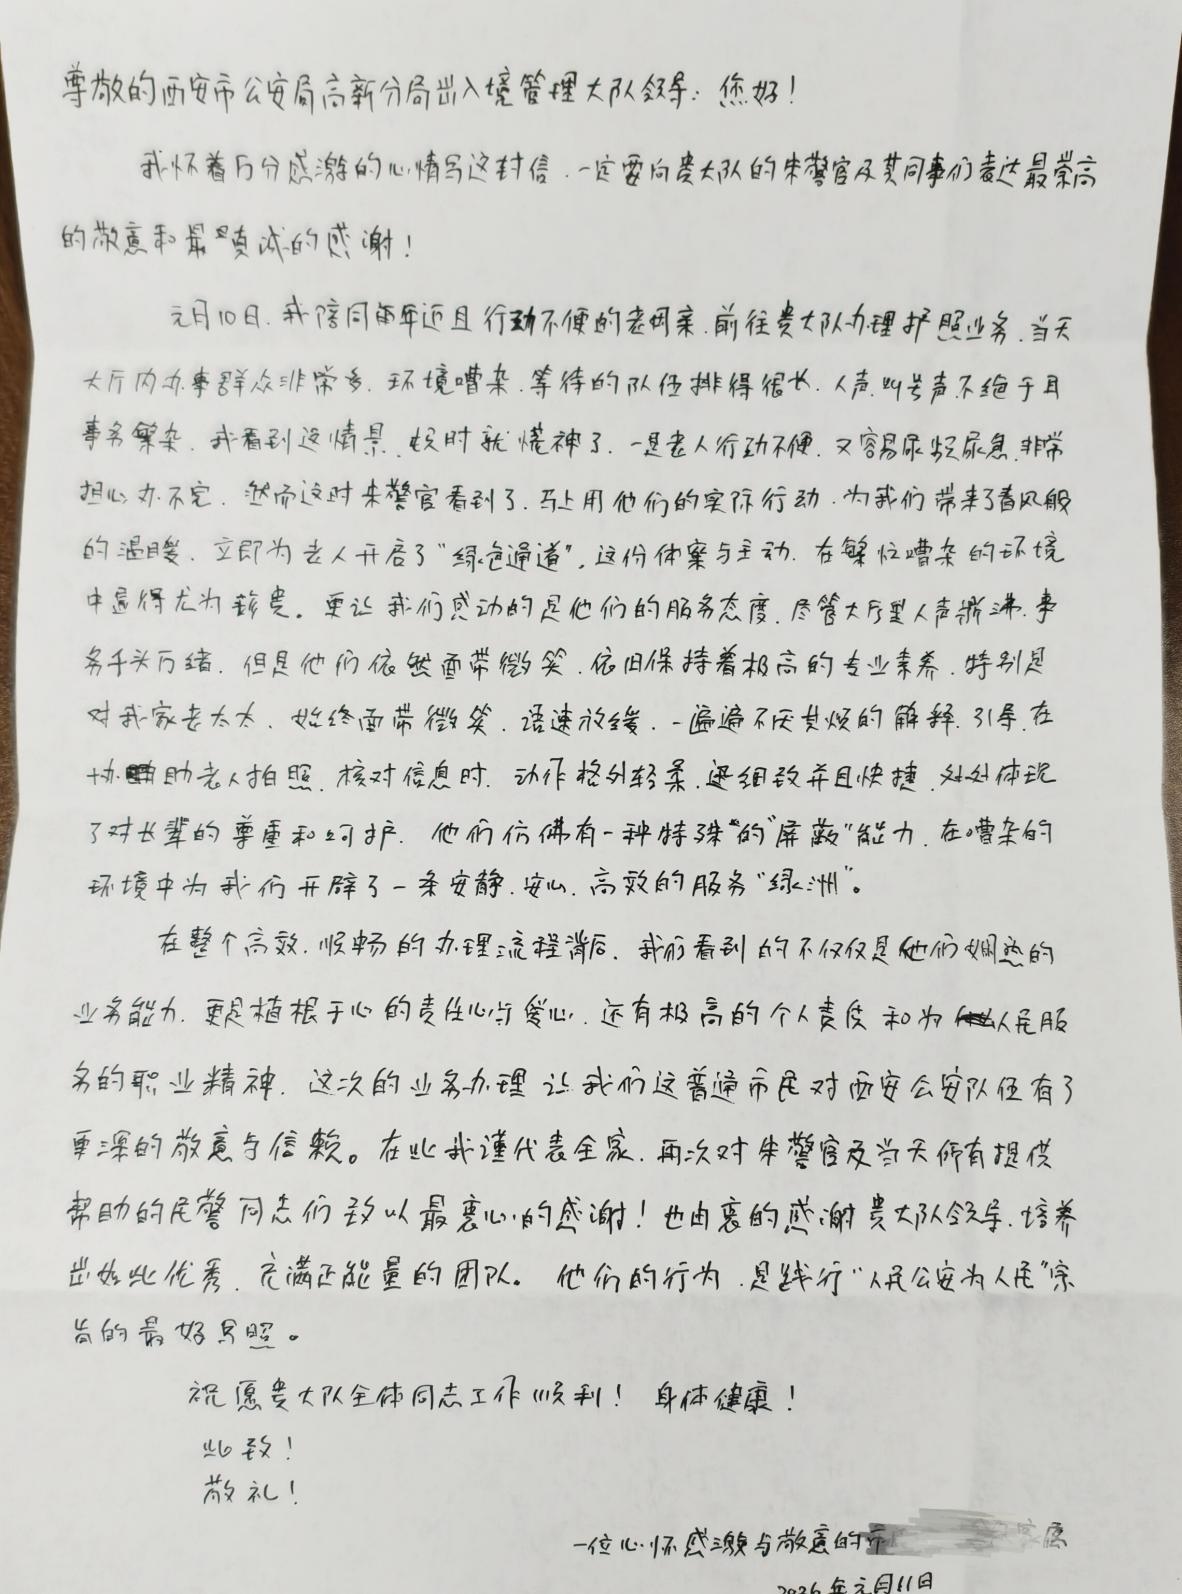 尊敬的西安市公安局高新分局出入境管理大队领导：您好！
我怀着万分感激的心情写这封信，一定要向贵大队的朱警官及其同事们表达最崇高
的敬意和最真诚的感谢！
元月10日，我陪同年近且行动不便的老母亲，前往贵大队办理护照业务，当天
大厅内办事群众非常多，环境嘈杂，等待的队伍排得很长，人声、叫号声不绝于耳
事务繁杂，我看到这情景，顿时就慌神了，一是老人行动不便，又容易尿频尿急，非常
担心办不完，然而这时朱警官看到了，马上用他们的实际行动，为我们带来了春风般
的温暖，立即为老人开启了“绿色通道”，这份体察与主动，在繁忙嘈杂的环境
中显得尤为珍贵。更让我们感动的是他们的服务态度，尽管大厅里人声鼎沸，事
务千头万绪，但是他们依然面带微笑，依旧保持着极高的专业素养，特别是
对我家老太太，始终面带微笑，语速放缓，一遍遍不厌其烦的解释，引导，在
协助老人拍照，核对信息时，动作格外轻柔，细致并且快捷，处处体现
了对长辈的尊重和呵护，他们仿佛有一种特殊的“屏蔽”能力，在嘈杂的
环境中为我们开辟了一条安静、安心、高效的服务“绿洲”。
在整个高效、顺畅的办理流程背后，我们看到的不仅仅是他们娴熟的
业务能力，更是植根于心的责任心与爱心，还有极高的个人责任和为人民服
务的职业精神，这次的业务办理让我们这普通市民对西安公安队伍有了
更深的敬意与信赖。在此我谨代表全家，再次对朱警官及当天所有提供
帮助的民警同志们致以最衷心的感谢！也由衷的感谢贵大队领导，培养
出如此优秀、充满正能量的团队。他们的行为，是践行“人民公安为人民”宗
旨的最好写照。
祝愿贵大队全体同志工作顺利！身体健康！
此致！
敬礼！
一位心怀感激与敬意的市 家属
2026年元月11日